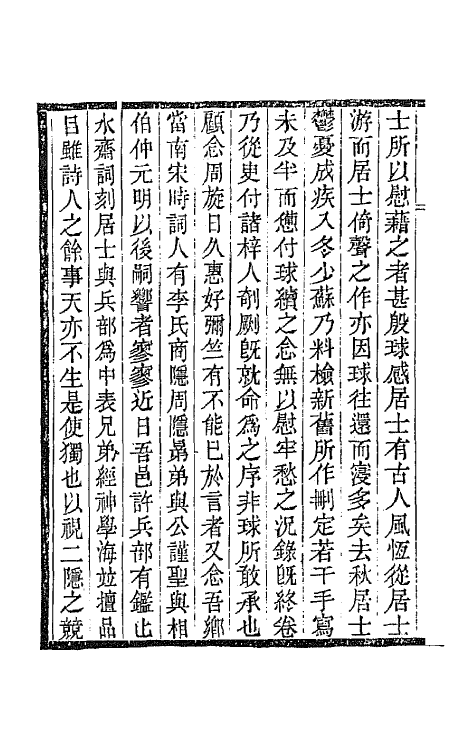 士所以慰藉之者甚殷球感居士有古人風恆從居士
游而居士倚聲之作亦因球往還而寖多矣去秋居士
鬱憂成疾入冬少蘇乃料檢新舊所作刪定若干手寫
未及半而憊付球續之念無以慰牢愁之況錄旣終卷
乃從臾付諸梓人剞劂旣就命爲之序非球所敢承也
顧念周旋日久惠好彌竺有不能已於言者又念吾鄉
當南宋時詞人有李氏商隱周隱昴弟與公謹聖與相
伯仲元明以後嗣響者寥寥近日吾邑許兵部有鑑止
水齋詞刻居士與兵部爲中表兄弟經神學海竝擅品
目雖詩人之餘事天亦不生是使獨也以視二隱之競